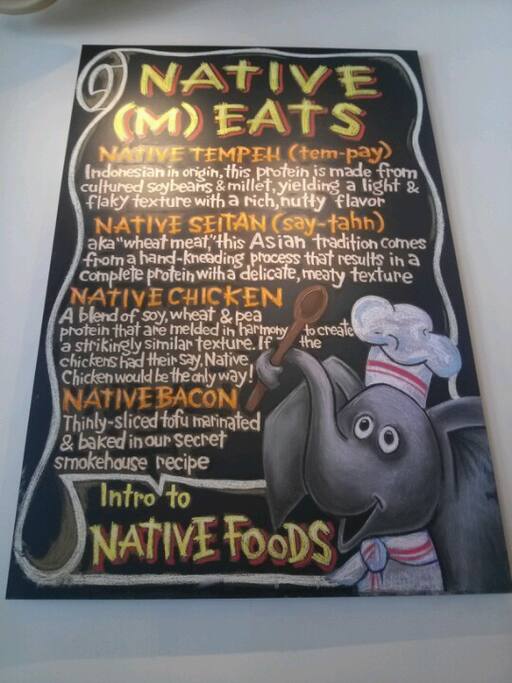 NATIVE
(M) EATS
NATIVE TEMPEH (tem-pay)
Indonesian in origin, this protein is made from
cultured soybeans & millet, yielding a light &
flaky texture with a rich, nutty flavor
NATIVE SEITAN (say-tahn)
aka "wheat meat," this Asian tradition comes
from a hand-kneading process that results in a
complete protein with a delicate, meaty texture
NATIVE CHICKEN
A blend of soy, wheat & pea
protein that are melded in harmony to create
a strikingly similar texture. If the
chickens had their say, Native
Chicken would be the only way!
NATIVE BACON
Thinly-sliced tofu marinated
& baked in our secret
smokehouse recipe
Intro to
NATIVE FOODS